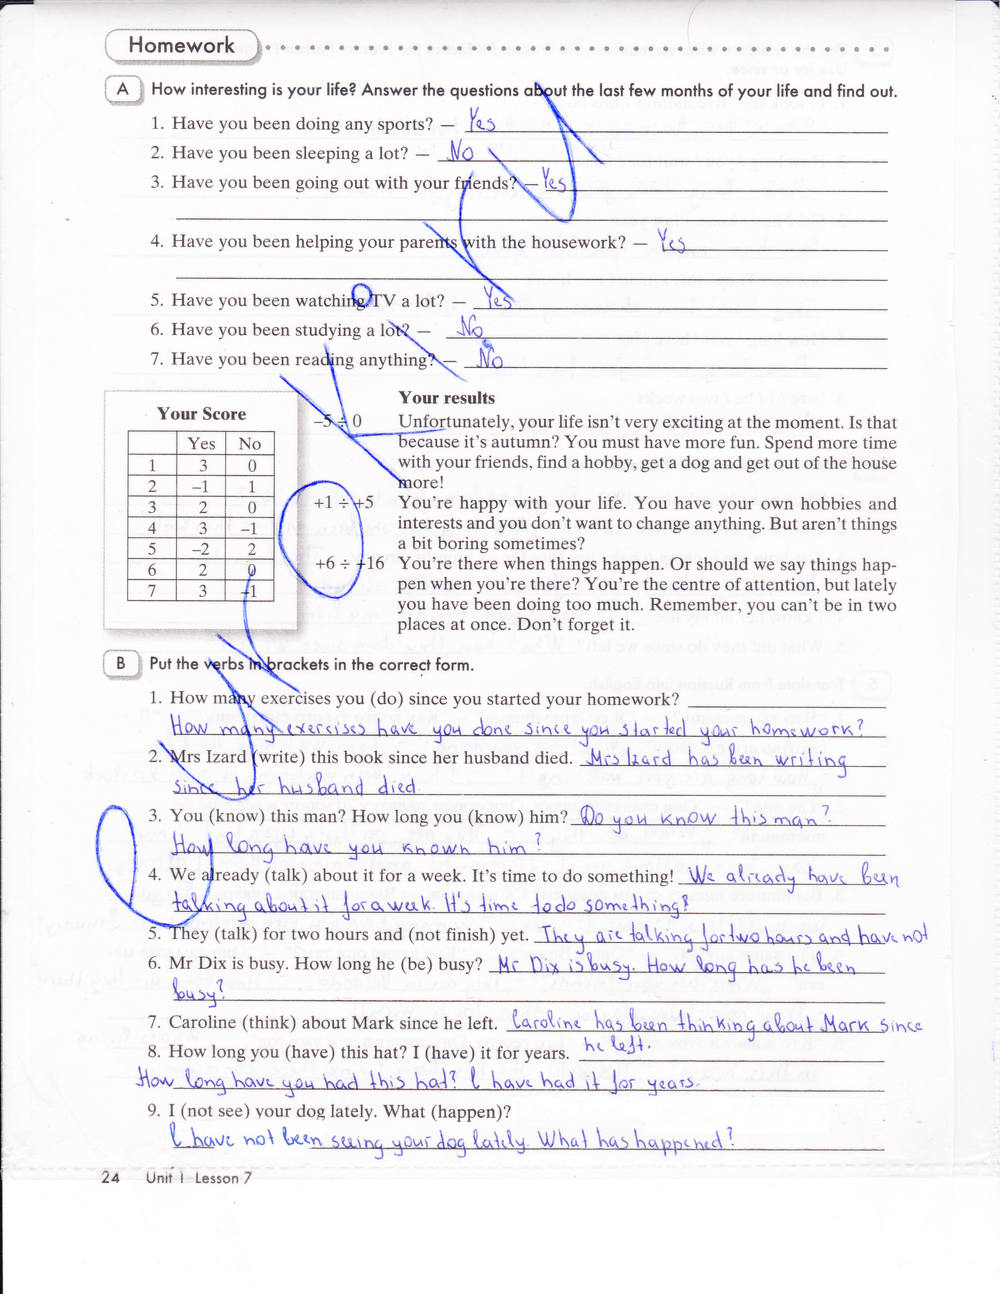 Homework
A How interesting is your life? Answer the questions about the last few months of your life and find out.
1. Have you been doing any sports? — Yes
2. Have you been sleeping a lot? — No
3. Have you been going out with your friends? — Yes
4. Have you been helping your parents with the housework? — Yes
5. Have you been watching TV a lot? — Yes
6. Have you been studying a lot? — No
7. Have you been reading anything? — No
Your Score
Yes No
1 3 0
2 –1 1
3 2 0
4 3 –1
5 –2 2
6 2 0
7 3 –1
Your results
–5 ÷ 0 Unfortunately, your life isn't very exciting at the moment. Is that
because it's autumn? You must have more fun. Spend more time
with your friends, find a hobby, get a dog and get out of the house
more!
+1 ÷ +5 You're happy with your life. You have your own hobbies and
interests and you don't want to change anything. But aren't things
a bit boring sometimes?
+6 ÷ +16 You're there when things happen. Or should we say things hap-
pen when you're there? You're the centre of attention, but lately
you have been doing too much. Remember, you can't be in two
places at once. Don't forget it.
B Put the verbs in brackets in the correct form.
1. How many exercises you (do) since you started your homework?
How many exercises have you done since you started your homework?
2. Mrs Izard (write) this book since her husband died. Mrs Izard has been writing
since her husband died.
3. You (know) this man? How long you (know) him? Do you know this man?
How long have you known him?
4. We already (talk) about it for a week. It's time to do something! We already have been
talking about it for a week. It's time to do something?
5. They (talk) for two hours and (not finish) yet. They are talking for two hours and have not
6. Mr Dix is busy. How long he (be) busy? Mr Dix is busy. How long has he been
busy?
7. Caroline (think) about Mark since he left. Caroline has been thinking about Mark since
he left.
8. How long you (have) this hat? I (have) it for years.
How long have you had this hat? I have had it for years.
9. I (not see) your dog lately. What (happen)?
I have not been seeing your dog lately. What has happened?
24 Unit 1 Lesson 7